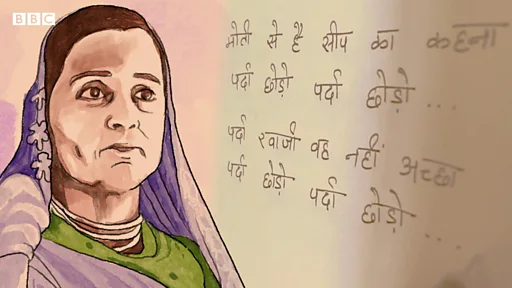 BBC
मोती से है सीप का कहना
पर्दा छोड़ो पर्दा छोड़ो ...
पर्दा स्वाजी वह नहीं अच्छा
पर्दा छोड़ो पर्दा छोड़ो ...